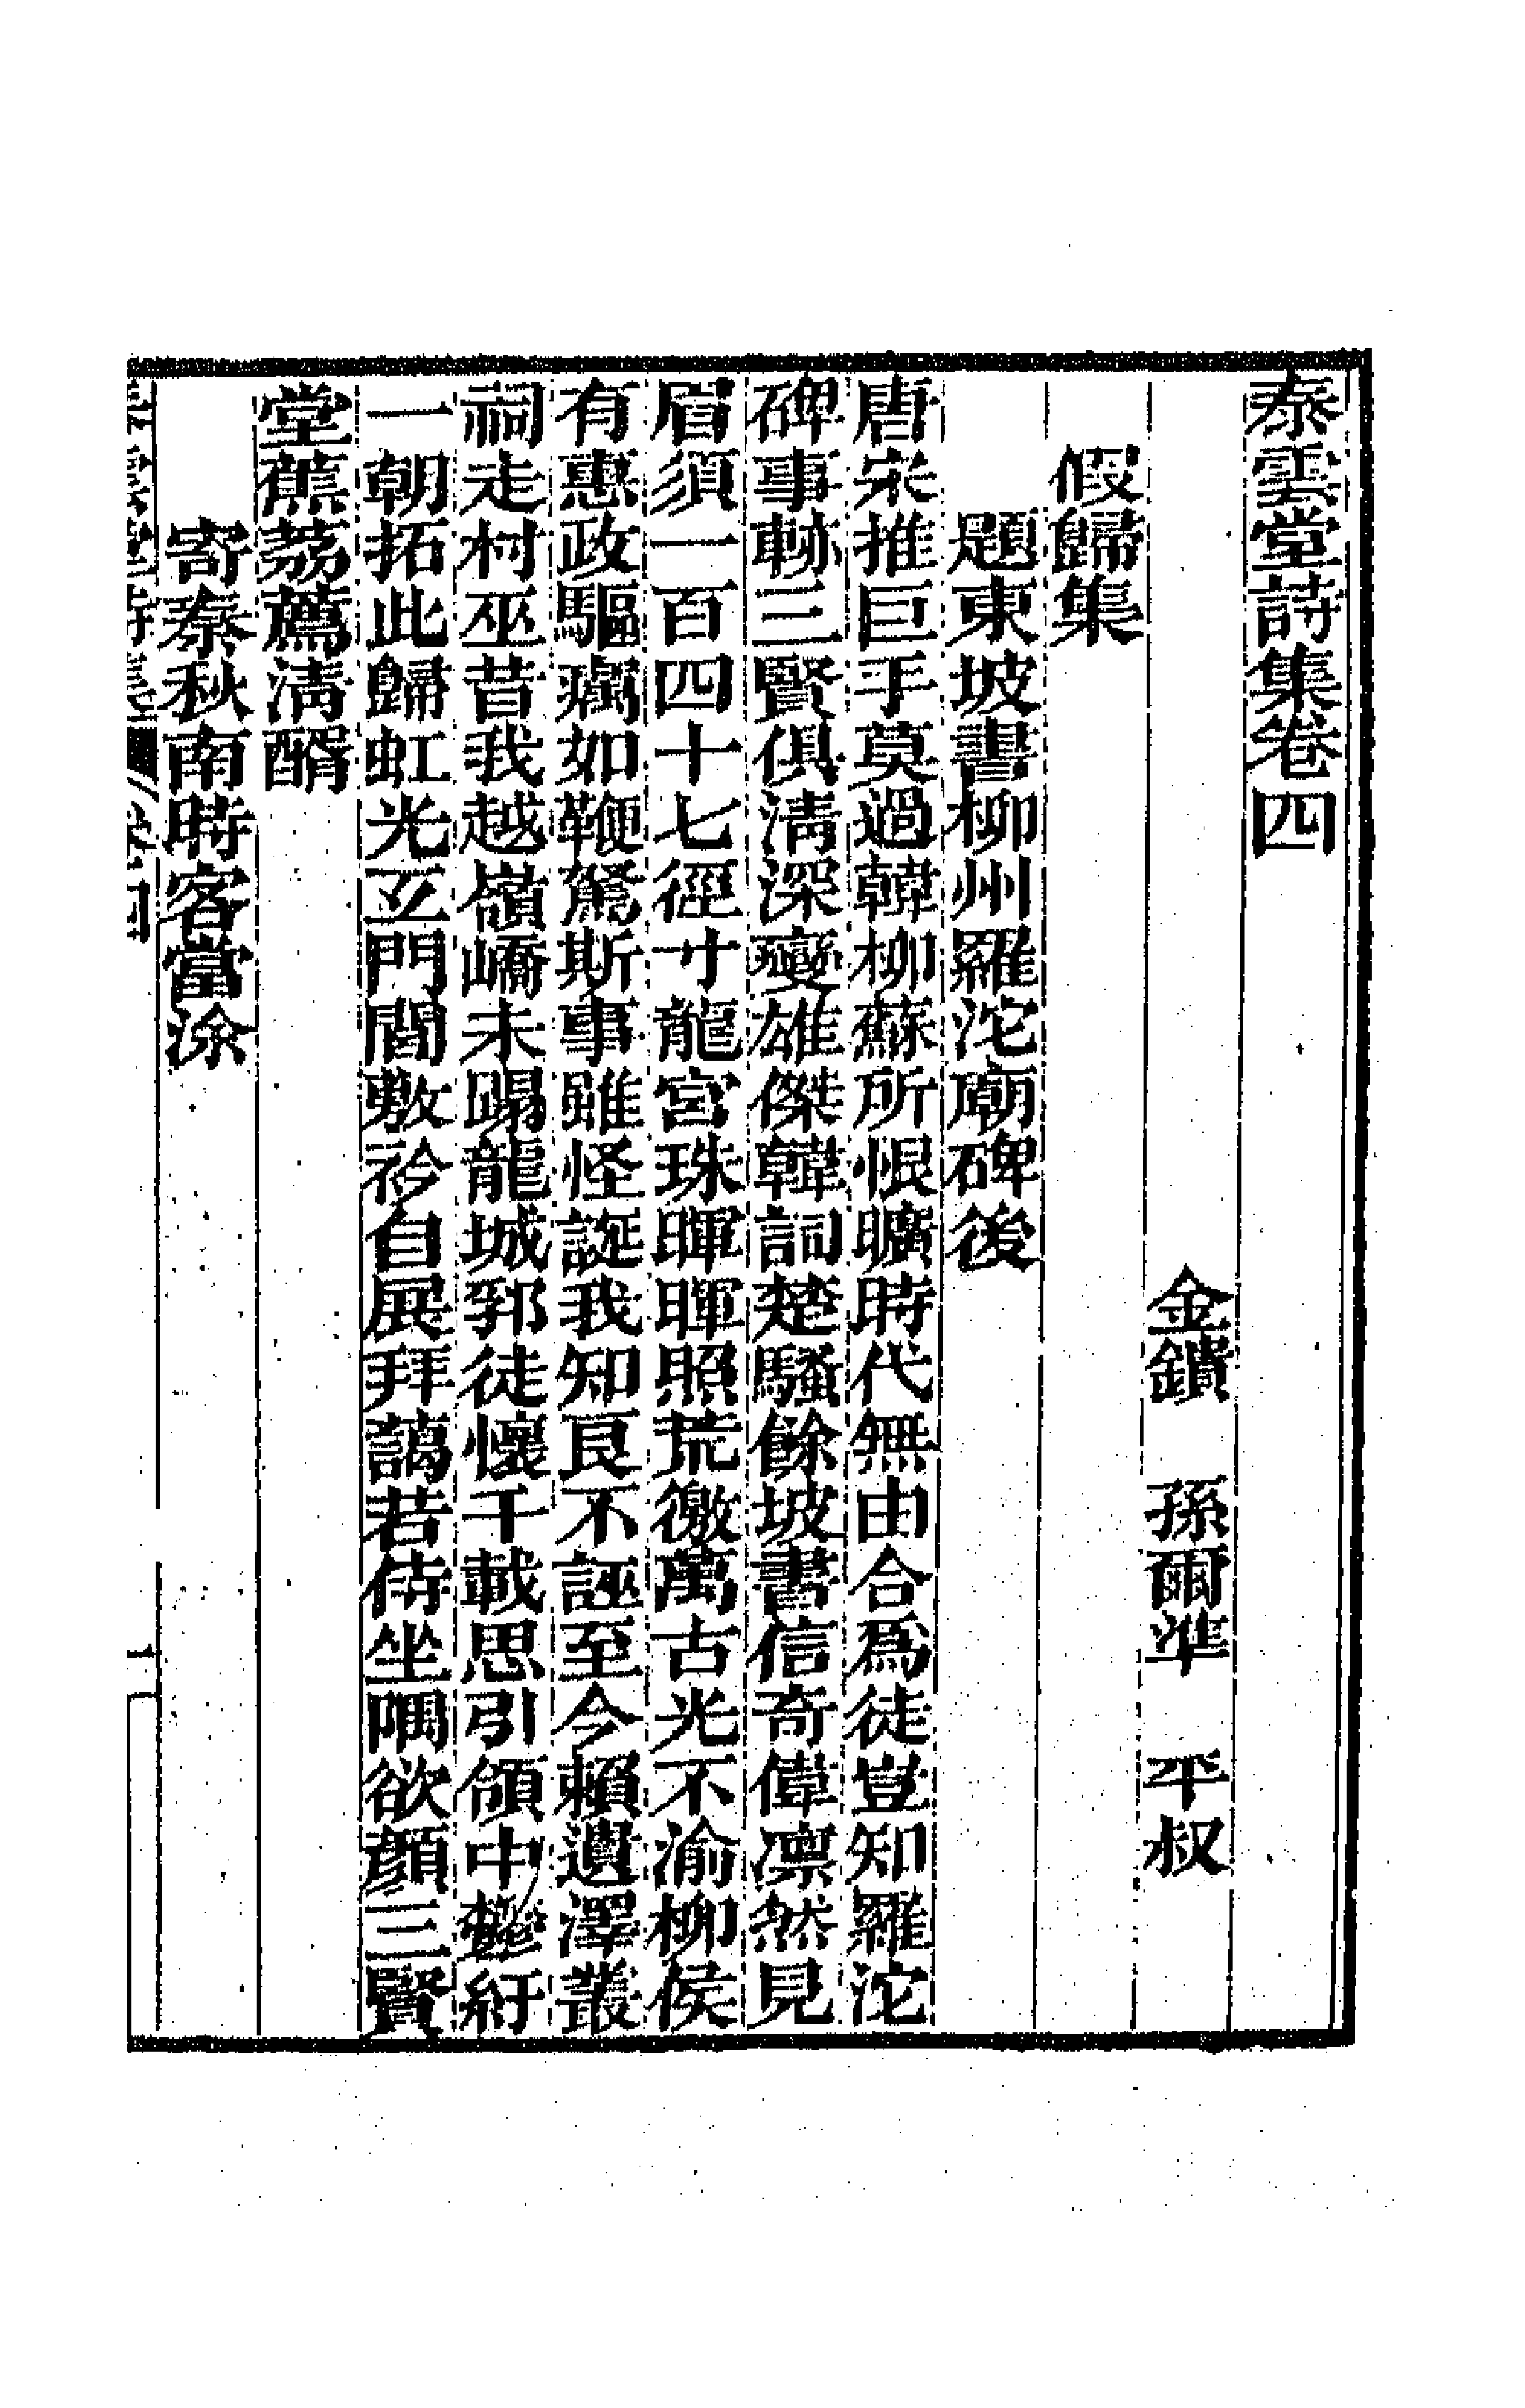 泰雲堂詩集卷四
金鑕　孫爾準　平叔
假歸集
題東坡書柳州羅沱廟碑後
唐宋推巨手莫過韓柳蘇所恨曠時代無由合爲徒豈知羅沱
碑事勣三賢俱淸深變雄傑韓詞楚騷餘坡書信奇偉凛然見
眉須一百四十七徑寸龍宮珠暉暉照荒徼萬古光不渝柳侯
有惠政驅癘如鞭駑斯事雖怪誕我知良不誣至今賴遺澤叢
祠走村巫昔我越嶺嶠未蹋龍城郛徒懷千載思引領中鬱紆
一朝拓此歸虹光亙門閭敷衿自展拜藹若侍坐隅欲顏三賢
堂蕉荔薦淸醑
寄秦秋南時客當涂
泰雲堂詩集　卷四　一